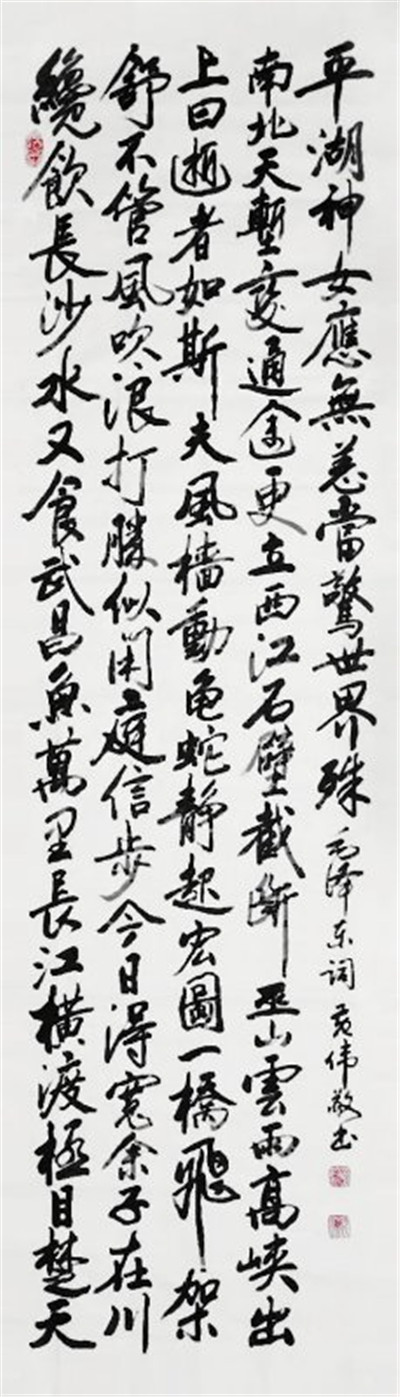 纔飲長沙水又食武昌魚萬里長江橫渡極目楚天
舒不管風吹浪打勝似閑庭信步今日得寬余子在川
上曰逝者如斯夫風檣動龜蛇靜起宏圖一橋飛架
南北天塹變通途更立西江石壁截斷巫山雲雨高峽出
平湖神女應無恙當驚世界殊 毛泽东词 黄伟敬书